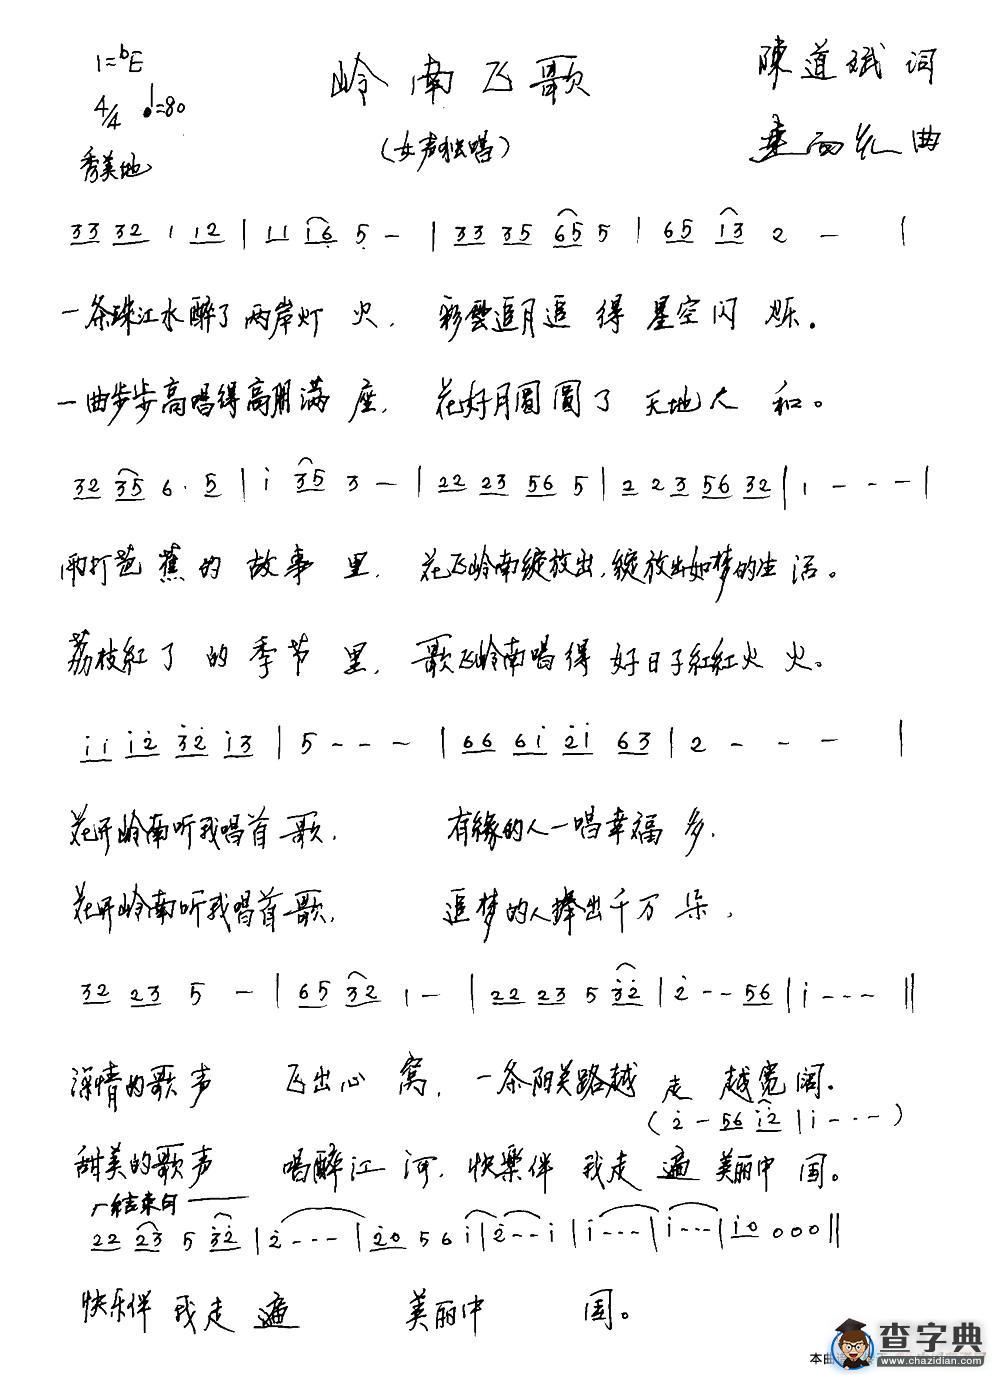 1=ᵇE
岭南飞歌
陳道斌 词
4/4 ♩=80
(女声独唱)
曲
秀美地
33 32 1 12 | 11 i6 5 - | 33 35 65 5 | 65 i3 2 - |
一条珠江水醉了两岸灯火, 彩雲追月追得星空闪烁。
一曲步步高唱得高朋满座, 花好月圓圓了天地人和。
32 35 6. 5 | i 35 3 - | 22 23 56 5 | 2 2 3 56 32 | 1 - - - |
雨打芭蕉的故事里, 花飞岭南绽放出,绽放出如梦的生活。
荔枝紅了的季节里, 歌飞岭南唱得好日子紅紅火火。
i i i 2 3 2 i 3 | 5 - - - | 66 6i 2i 63 | 2 - - - |
花开岭南听我唱首歌, 有缘的人一唱幸福多,
花开岭南听我唱首歌, 追梦的人捧出千万朵,
32 23 5 - | 65 32 1 - | 22 23 5 32 | 2 - - 56 | i - - - ‖
深情的歌声 飞出心窝, 一条阳关路越走越宽阔。
(2 - 56 i2 | i - - - )
甜美的歌声 唱醉江河, 快樂伴我走遍美丽中国。
结束句
22 23 5 32 | 2 - - - | 20 5 6 i | 2 - - i | i - - - | i - - - | i0 0 0 0 ‖
快乐伴我走遍 美丽中国。
本曲
查字典
www.chazidian.com